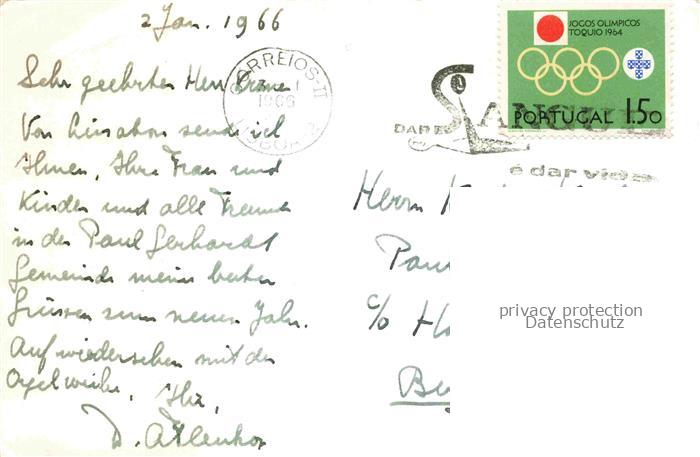 2 Jan. 1966
Sehr geehrter Herr
Von Lissabon sende ich
Ihnen, Ihre Frau und
Kinder und alle Freunde
in der Paul Gerhardt
Gemeinde meine besten
Grüssen zum neuen Jahr.
Auf wiedersehen mit der
Orgelweihe. Ihr,
D.
CORREIOS-II
1966
LISBOA
DAR SANGUE
é dar vida
JOGOS OLIMPICOS
TOQUIO 1964
PORTUGAL 1.50
Herrn
Pau
c/o Ho
Be
privacy protection
Datenschutz